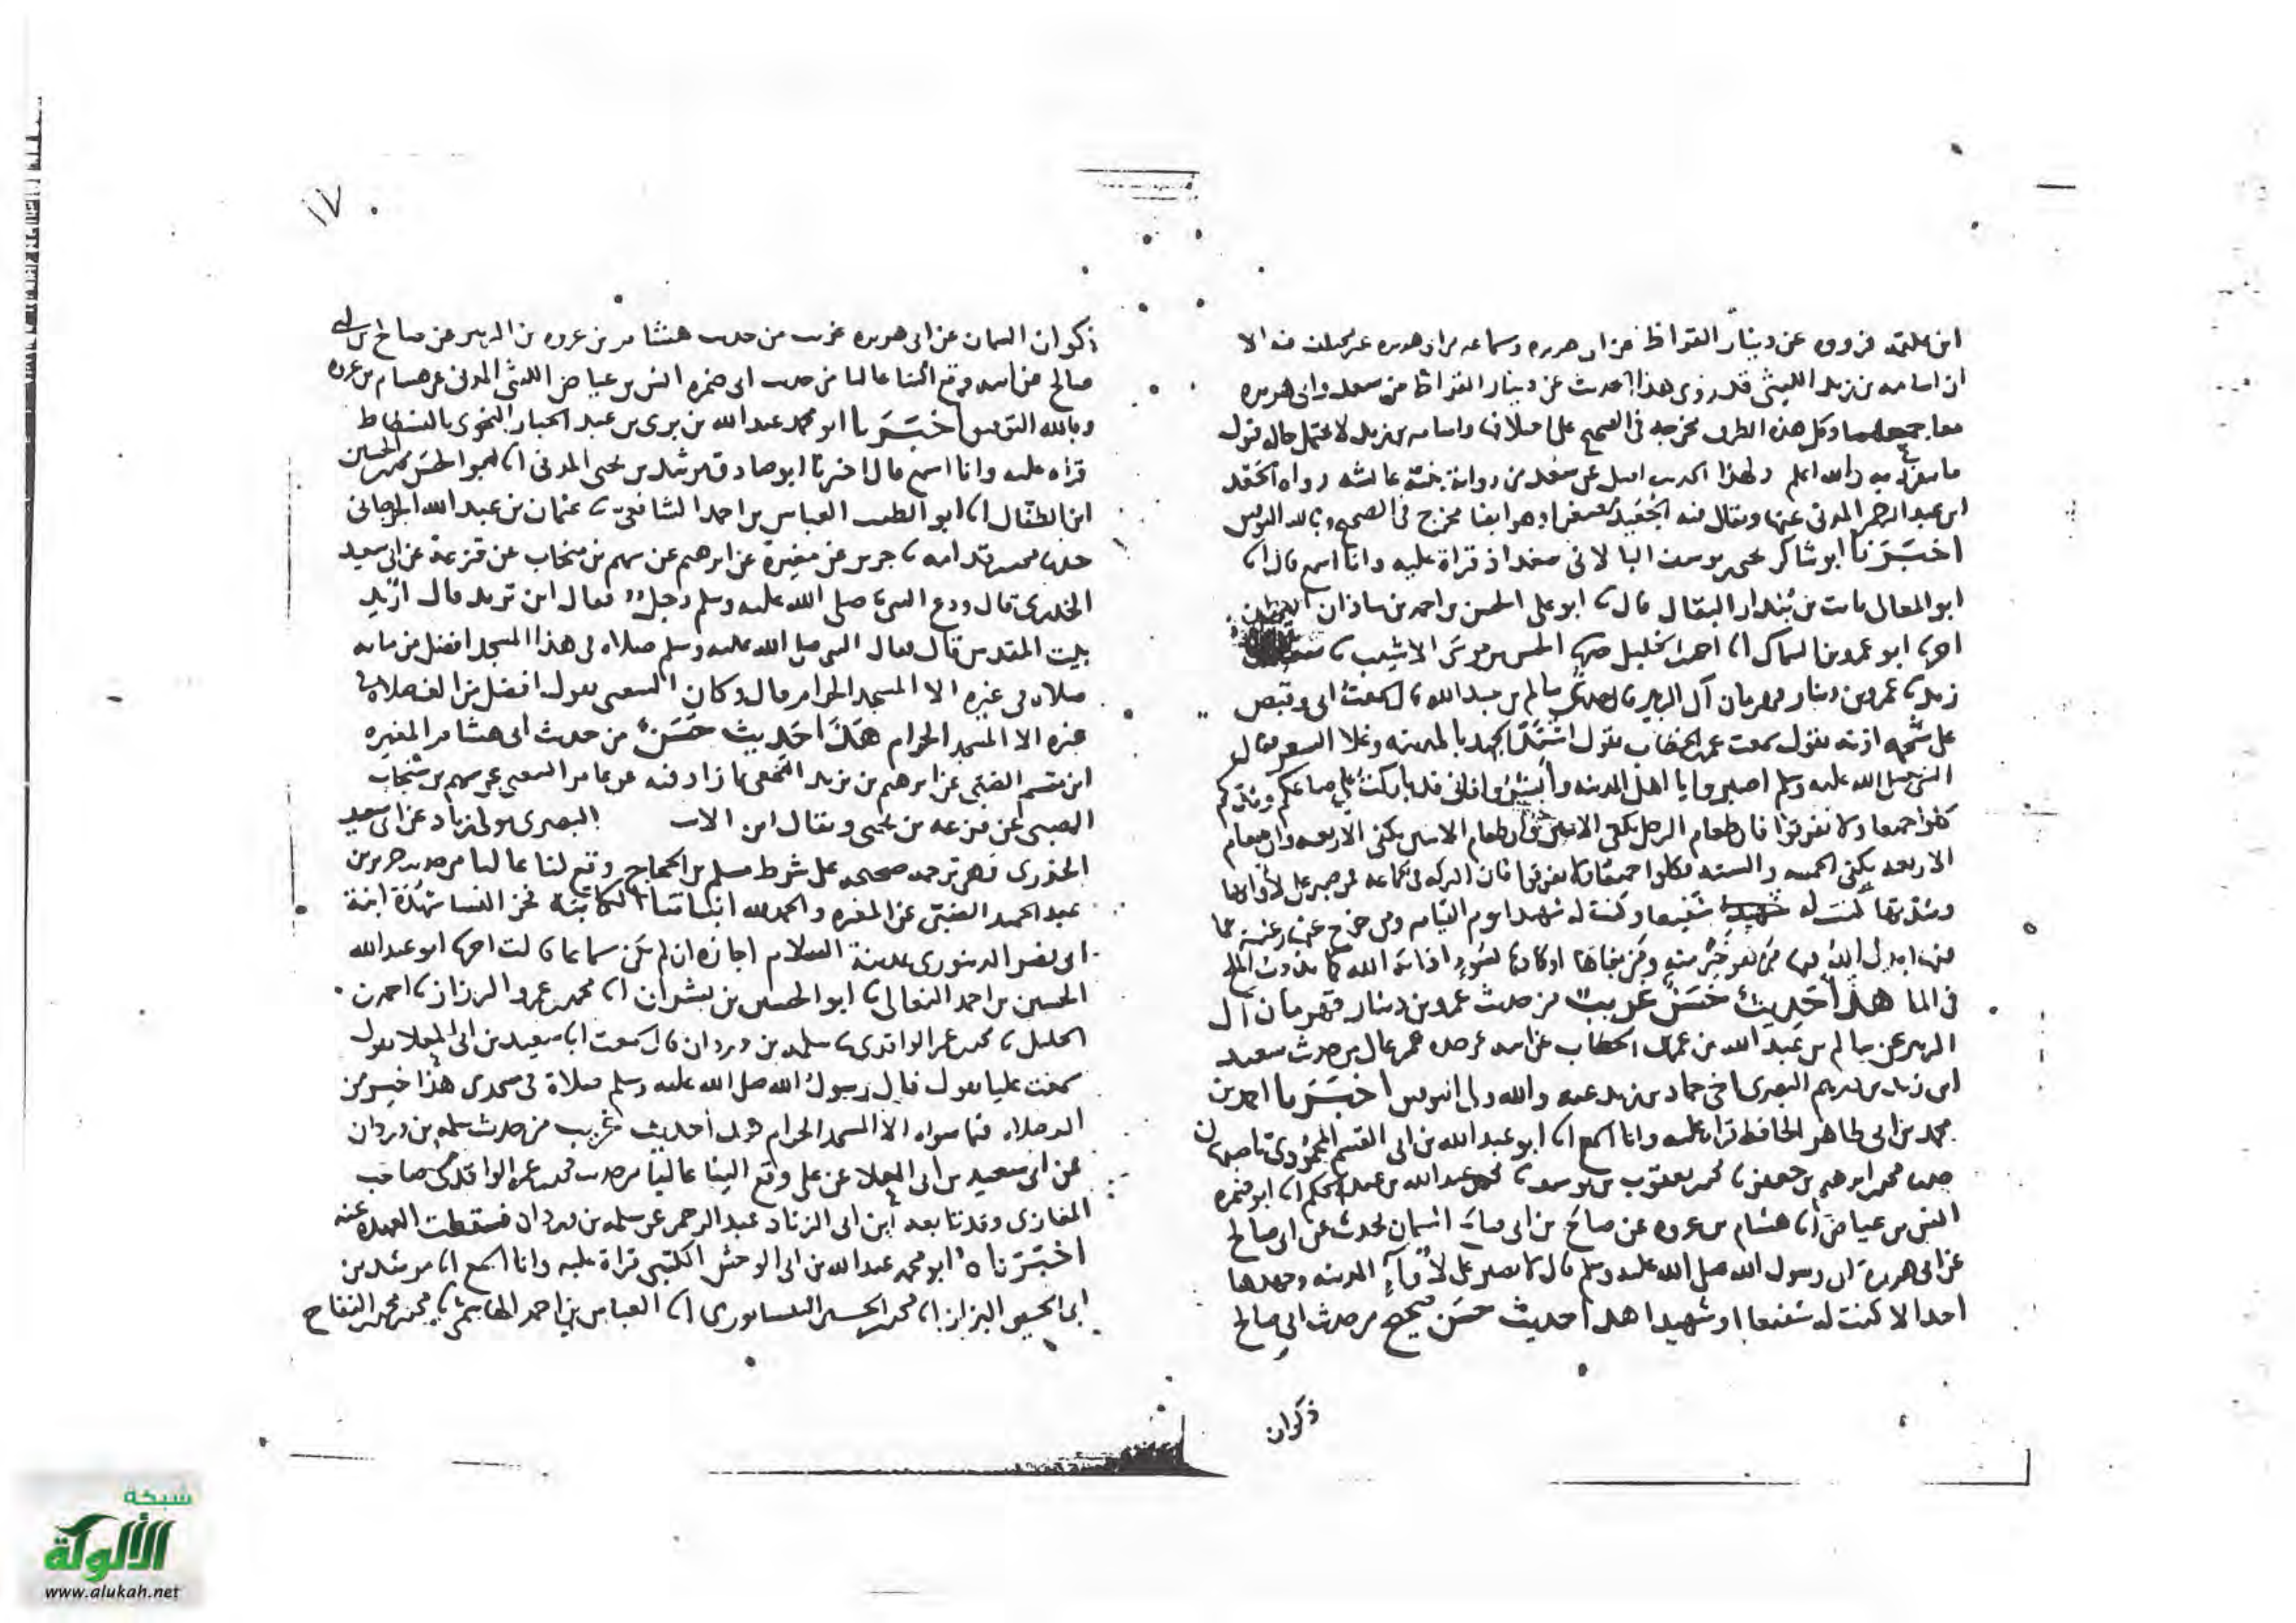 ابن علقمة فرووه عن دينار القراظ عن ابى هريره وسماعه من ابى هريره غير مختلف فيه الا
ان اسامه بن زيد الليثي قد روى هذا الحديث عن دينار القراظ عن سعد وابى هريره
معا جميعهما وكل هذه الطرق مخرجه فى الصحيح على اختلاف واسامه بن زيد لا يحتمل حاله قبول
ما يتفرد به والله اعلم ولهذا الحديث اصل عن سعد من روايه بنته عائشه رواه الجعد
ابن عبد الرحمن المدنى عنها ويقال فيه الجعيد مصغرا وهو ايضا مخرج فى الصحيح وبالله التوفيق
اخبرنا ابو شاكر يحيى بن يوسف البالانى ببغداد قراة عليه وانا اسمع قال انا
ابو المعالى ثابت بن بندار البقال قال انا ابو على الحسن بن احمد بن شاذان
انا ابو عمرو بن السماك انا احمد بن الخليل حدثنا الحسن بن موسى الاشيب نا سعيد بن
زيد نا عمرو بن دينار قهرمان آل الزبير نا سالم بن عبد الله قال سمعت ابى وقبض
على شحمه اذنه يقول سمعت عمر بن الخطاب يقول اشتد الجهد بالمدينه وغلا السعر فقال
النبى صلى الله عليه وسلم اصبروا يا اهل المدينه وابشروا فانى قد باركت على صاعكم ومدكم
كلوا جميعا ولا تفرقوا فان طعام الرجل يكفى الاثنين وان طعام الاثنين يكفى الاربعه وان طعام
الاربعه يكفى الخمسه والسته فكلوا جميعا ولا تفرقوا فان البركه فى الجماعه فمن صبر على لأوائها
وشدتها كنت له شفيعا وكنت له شهيدا يوم القيامه ومن خرج عنها رغبة عما
فيها ابدل الله فيها من هو خير منه ومن بغاها او كادها بسوء اذابه الله كما يذوب الملح
فى الما هذا حديث حسن غريب من حديث عمرو بن دينار قهرمان آل
الزبير عن سالم بن عبد الله بن عمر بن الخطاب عن ابيه عن جده عمر عال من حديث سعيد
ابن زيد بن درهم البصرى اخى حماد بن زيد عنه والله ولى التوفيق اخبرنا احمد بن
محمد بن ابى طاهر الحافظ قراة عليه وانا اسمع انا ابو عبد الله بن ابى القسم باصبهان
حدثنا محمد بن ابرهيم بن جعفر نا محمد بن يعقوب بن يوسف نا محمد بن عبد الله بن عبد الحكم انا ابو ضمره
انس بن عياض انا هشام بن عروه عن صالح بن ابى صالح السمان يحدث عن ابى صالح
عن ابى هريرة ان رسول الله صلى الله عليه وسلم قال لا يصبر على لأوآء المدينه وجهدها
احد الا كنت له شفيعا او شهيدا هذا حديث حسن صحيح من حديث ابى صالح
ذكوان
١٧
ذكوان السمان عن ابى هريره غريب من حديث هشام بن عروه بن الزبير عن صالح بن ابى
صالح عن ابيه وقع الينا عاليا من حديث ابى ضمره انس بن عياض الليثى المدنى عن هشام بن عروه
وبالله التوفيق اخبرنا ابو محمد عبد الله بن برى بن عبد الجبار النحوى بالفسطاط
قراه عليه وانا اسمع قال اخبرنا ابو صادق مرشد بن يحيى المدينى انا ابو الحسن محمد بن الحسين
ابن الطفال انا ابو الطيب العباس بن احمد الشافعى نا عثمان بن عبد الله الجرجانى
حدثنا محمد بن قدامه نا جرير عن مغيرة عن ابرهيم عن سهم بن منجاب عن قزعة عن ابى سعيد
الخدرى قال ودع النبى صلى الله عليه وسلم رجل فقال اين تريد قال اريد
بيت المقدس قال فقال النبى صلى الله عليه وسلم صلاه فى هذا المسجد افضل من مايه
صلاه فى غيره الا المسجد الحرام قال وكان الشعبى يقول افضل من الف صلاه فى
غيره الا المسجد الحرام هذا حديث حسن من حديث ابى هشام المغيره
ابن مقسم الضبى عن ابرهيم بن يزيد النخعى بما زاد فيه عن عامر الشعبى عن سهم بن منجاب
الضبى عن قزعه بن يحيى ويقال ابن الاسود البصرى مولى زياد عن ابى سعيد
الخدرى فهى ترجمه صحيحه على شرط مسلم بن الحجاج وقع لنا عاليا من حديث جرير بن
عبد الحميد الضبى عن المغيره والحمد لله انباتنا الكاتبة فخر النسا شهدة ابنة
ابى نصر الدينورى بمدينة السلام اجازه ان لم يكن سماعا قالت انا ابو عبد الله
الحسين بن احمد النعالى نا ابو الحسين بن بشران انا محمد بن عمرو الرزاز نا احمد بن
الخليل نا محمد بن عمر الواقدى نا سلمه بن وردان قال سمعت ابا سعيد بن ابى المعلا يقول
سمعت عليا يقول قال رسول الله صلى الله عليه وسلم صلاة فى مسجدى هذا خير من
الف صلاه فيما سواه الا المسجد الحرام هذا حديث غريب من حديث سلمه بن وردان
عن ابى سعيد بن ابى المعلا عن على وقع الينا عاليا من حديث محمد بن عمر الواقدى صاحب
المغازى وقد تابعه ابن ابى الزناد عبد الرحمن عن سلمه بن وردان فسقطت العهده عنه
اخبرناه ابو محمد عبد الله بن ابى الوحش الكتبى قراة عليه وانا اسمع انا مرشد بن
ابى الحسين البزاز انا محمد بن الحسين النيسابورى انا العباس بن احمد الهاشمى نا محمد بن محمد بن النفاح
شبكة
الألوكة
www.alukah.net